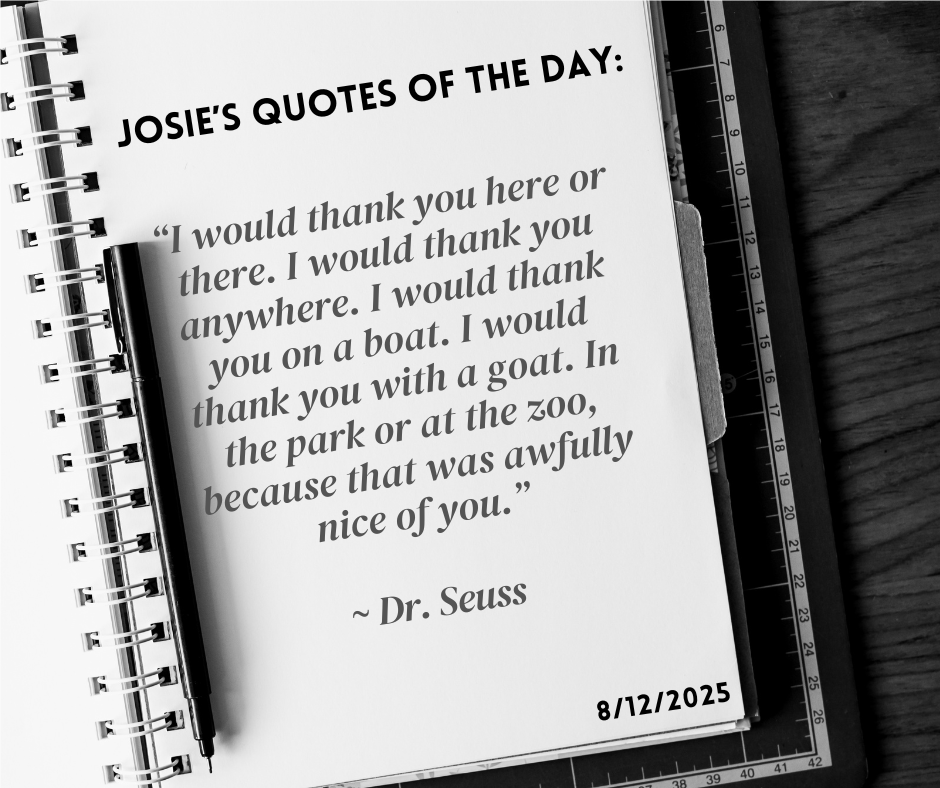 JOSIE'S QUOTES OF THE DAY:
“I would thank you here or
there. I would thank you
anywhere. I would thank
you on a boat. I would
thank you with a goat. In
the park or at the zoo,
because that was awfully
nice of you.”
~ Dr. Seuss
8/12/2025
6
7
8
9
10
11
12
13
14
15
16
17
18
19
20
21
22
23
24
25
26
38
39
40
41
42